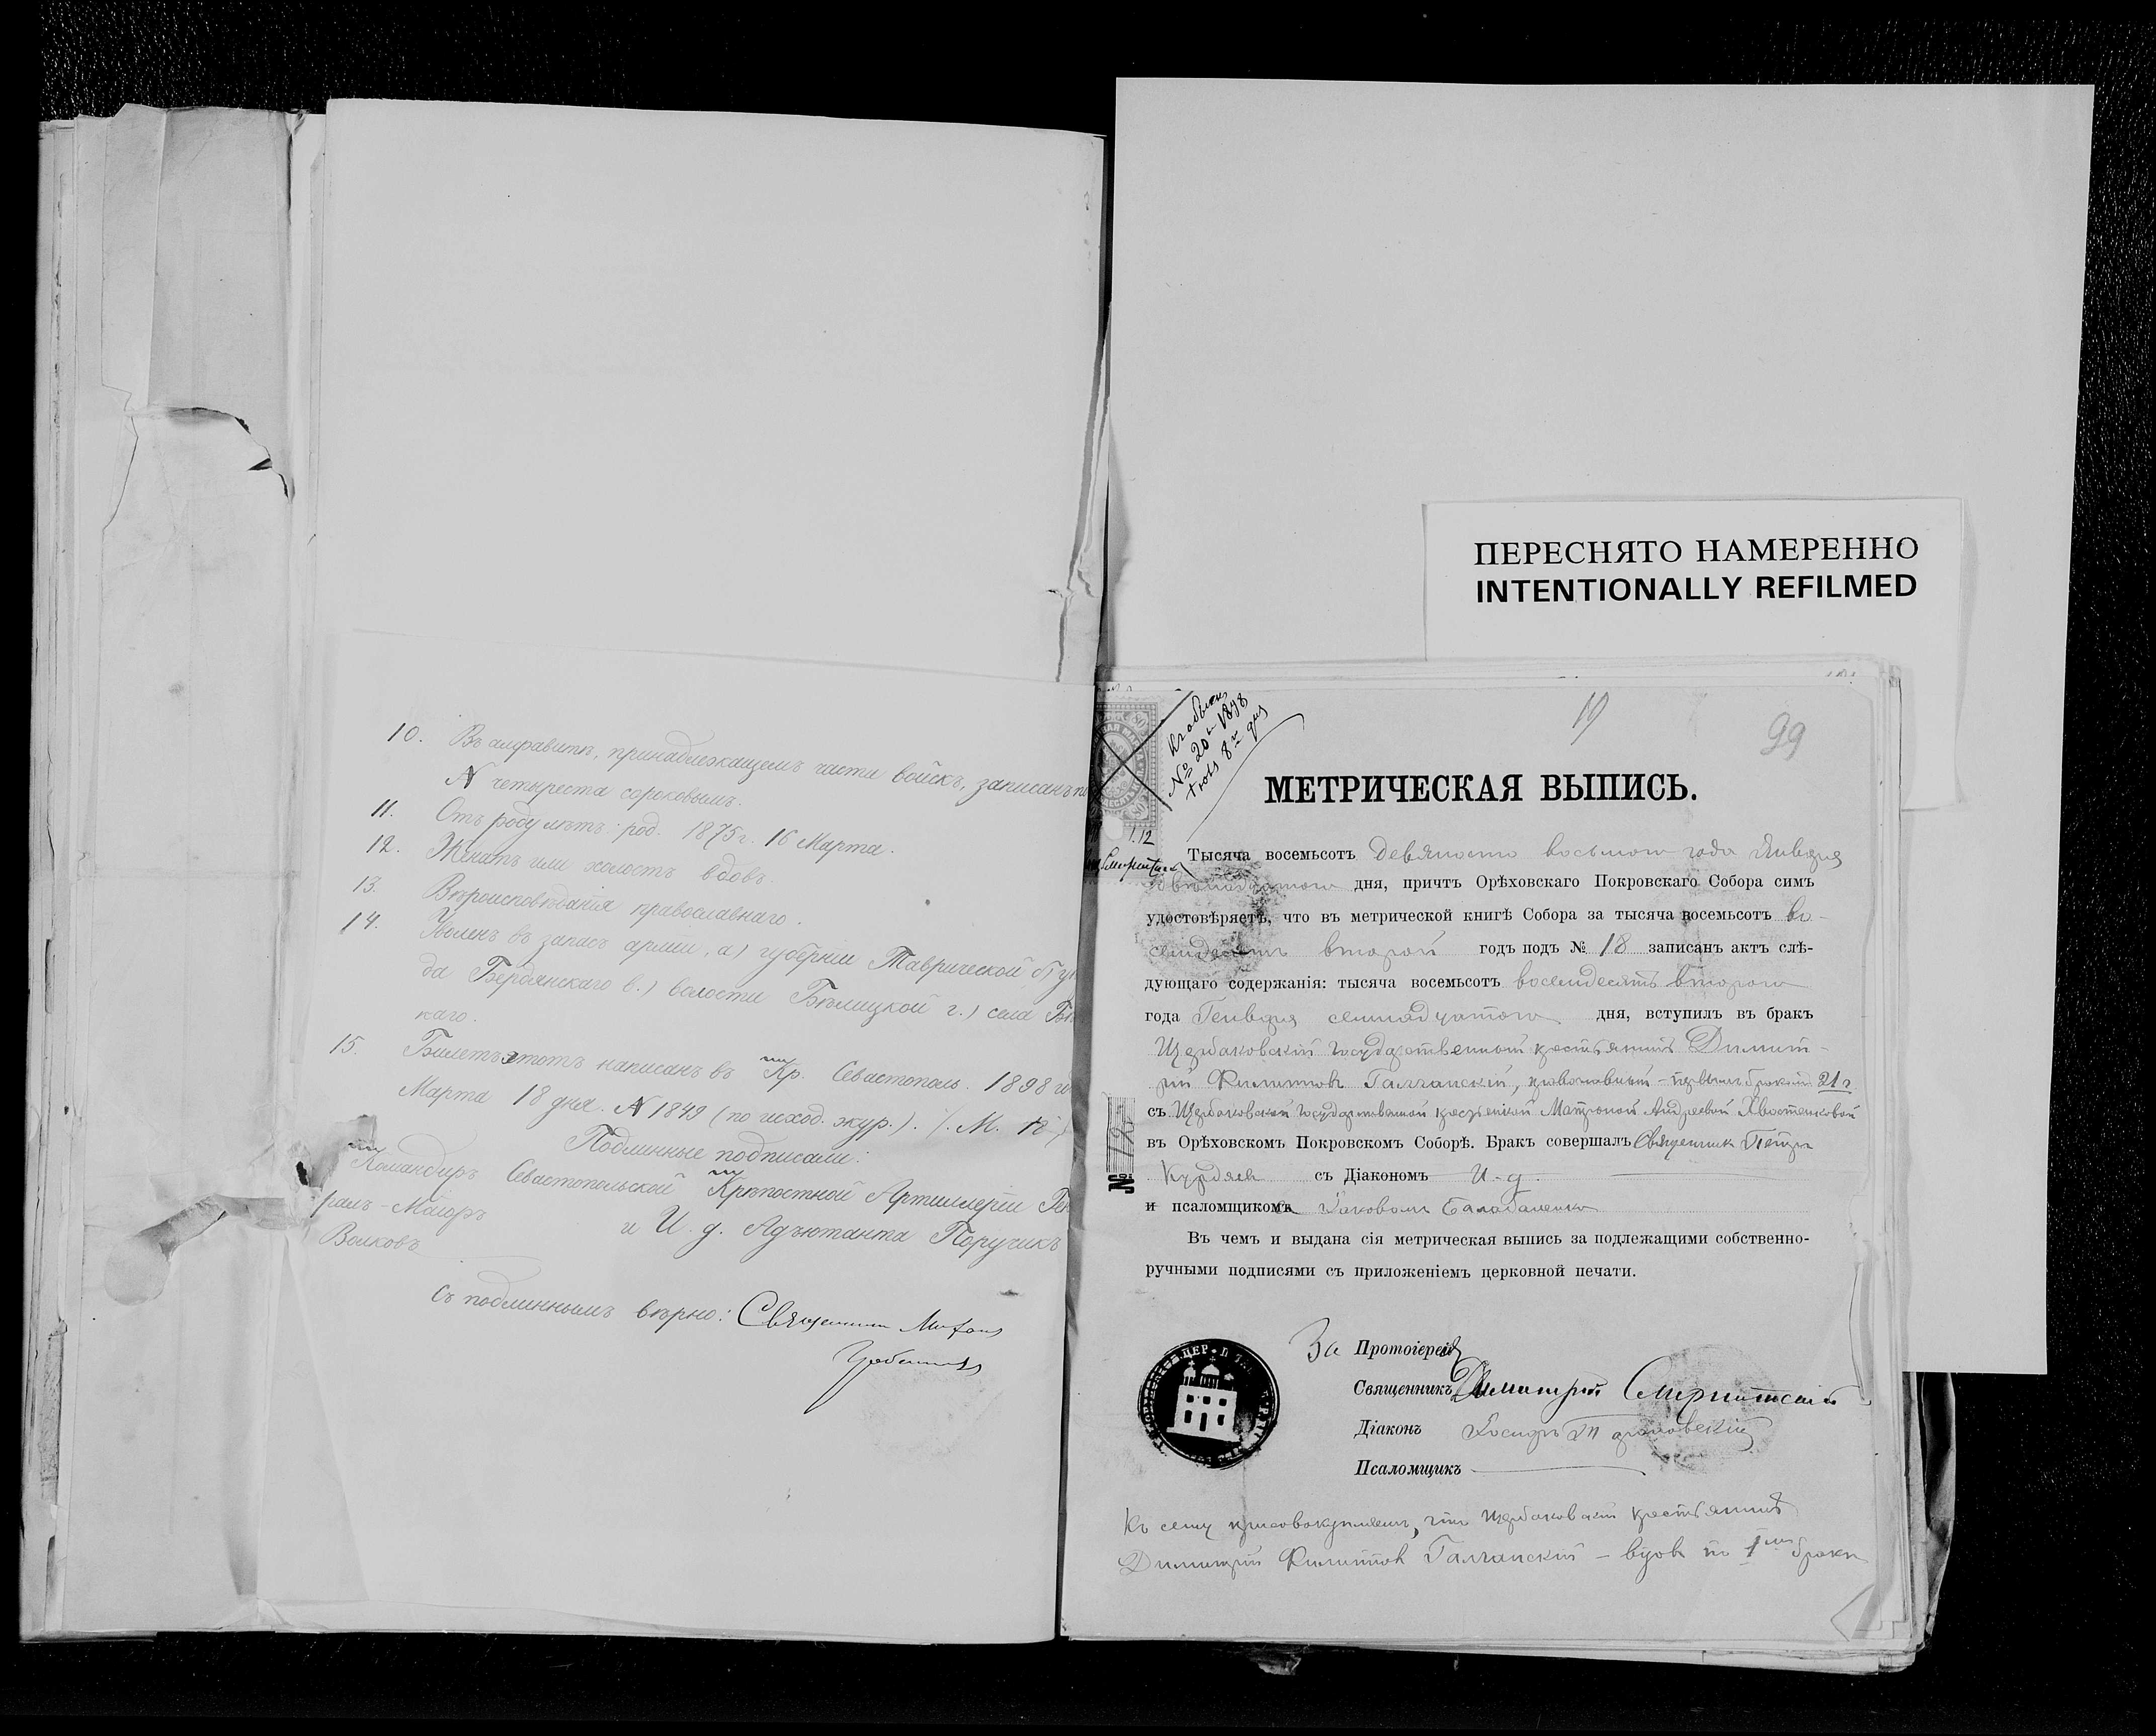 10. Въ алфавитѣ, принадлежащемъ части войскъ, записанъ
N четыреста сороковымъ.
11. Отъ роду лѣтъ: род. 1875 г. 16 Марта.
12. Женатъ или холостъ вдовъ.
13. Вѣроисповѣданія православнаго.
14. Уволенъ въ запасъ арміи, а) губерніи Таврической б)
да Бердянскаго в.) волости Бѣлицкой г.) села
каго.
15. Билетъ этотъ написанъ въ Кр. Севастополь. 1898
Марта 18 дня. N 1849 (по исход. жур.). М.
Подлинные подписали:
Командиръ Севастопольской Крѣпостной Артиллеріи Ген
ралъ-Маіоръ
Волковъ и И. д. Адъютанта Поручикъ
Съ подлиннымъ вѣрно: Священникъ
ПЕРЕСНЯТО НАМЕРЕННО
INTENTIONALLY REFILMED
19
99
№ 20 1898
8
112
МЕТРИЧЕСКАЯ ВЫПИСЬ.
Тысяча восемьсотъ девяносто восьмого года Января
дня, причтъ Орѣховскаго Покровскаго Собора симъ
удостовѣряетъ, что въ метрической книгѣ Собора за тысяча восемьсотъ во-
семдесятъ второй годъ подъ № 18 записанъ актъ слѣ-
дующаго содержанія: тысяча восемьсотъ восемдесятъ второго
года Генваря семнадцатого дня, вступилъ въ бракъ
Щербаковскій государственный крестьянинъ Димит-
рій Филипповъ Галчанскій, православный - первымъ бракомъ 21 г.
съ Щербаковской государственной крестьянкой Матроной Андреевой Хвостенковой
въ Орѣховскомъ Покровскомъ Соборѣ. Бракъ совершалъ Священникъ Петръ
съ Діакономъ И. д.
и псаломщикомъ Іаковомъ Балабаненко
Въ чемъ и выдана сія метрическая выпись за подлежащими собственно-
ручными подписями съ приложеніемъ церковной печати.
За Протоіерей
Священникъ Димитрій
Діаконъ
Псаломщикъ
№
Къ сему присовокупляемъ, что Щербаковскій крестьянинъ
Димитрій Филипповъ Галчанскій - вдовъ по 1 бракѣ